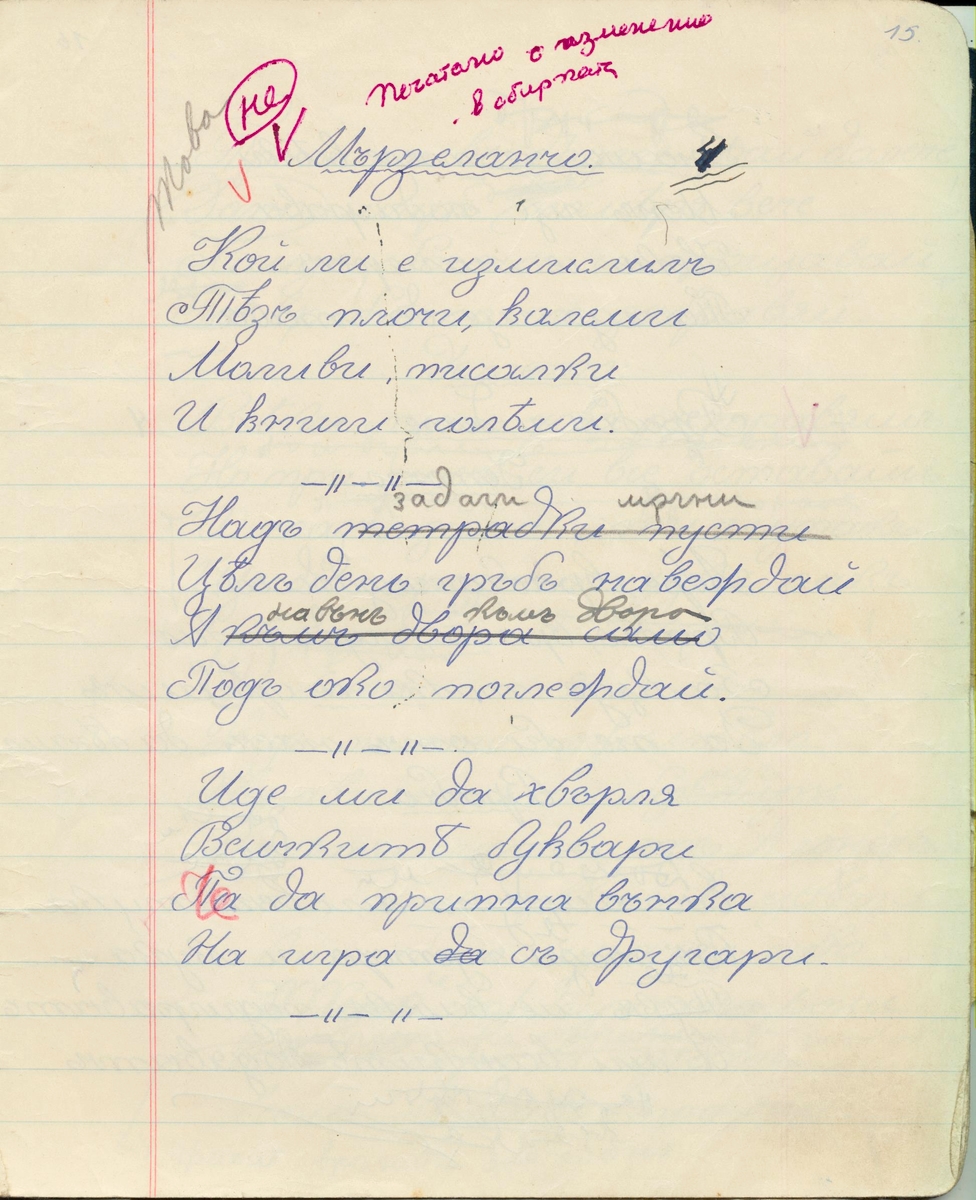 15.
Печатано с изменение
в сбирката
не
Това
Мързеланчо.
Кой ли е измислилъ
Тѣзъ плочи, калеми
Моливи, писалки
И книги голѣми.
—„—„—
задачи мъчни
Надъ тетрадки пусти
Цѣлъ день гръбъ навеждай
навънъ къмъ двора
А къмъ двора само
Подъ око поглеждай.
—„—„—.
Иде ми да хвърля
Всичкитѣ буквари
Че
Па да припна вънка
На игра да съ другари.
—„—„—